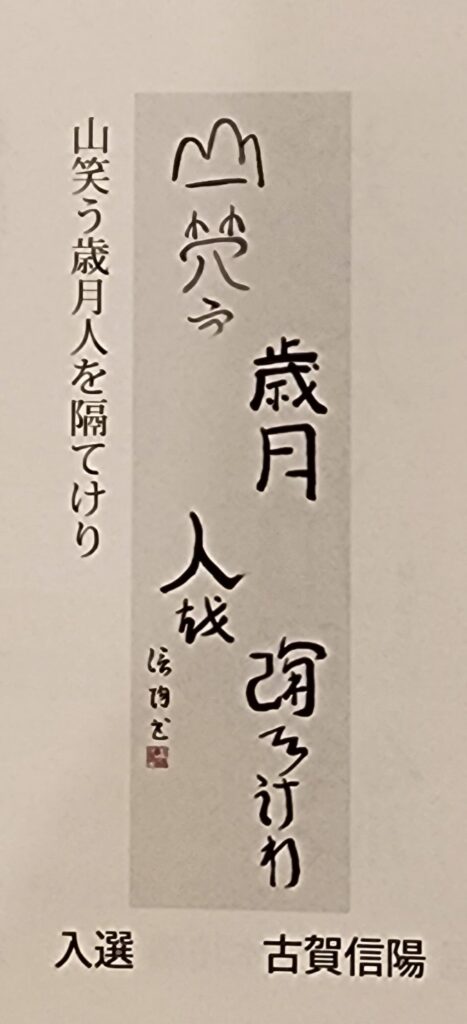 山笑う歳月人を隔てけり
山笑う
歳月
人越
隔てけり
信陽書
入選
古賀信陽